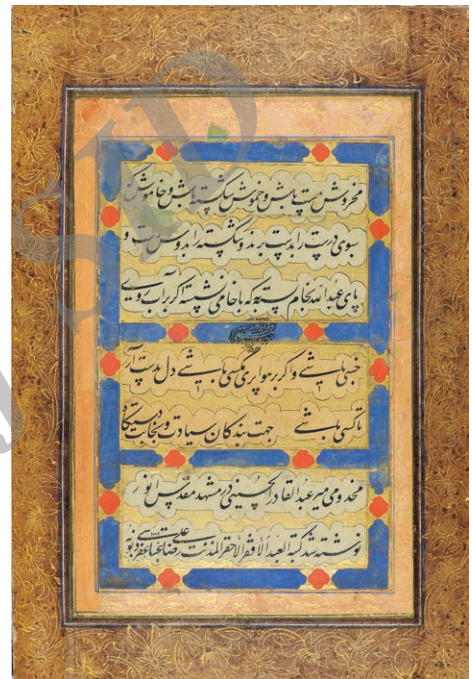 مخروش مست باش و خموش شکسته باش و خاموش که
سبوی درست را بدست برند و شکسته را بدوش مست و
پای عبدالله بخام بسته به که با خامی نشسته اگر بر آب روی
خسی باشی و اگر بر هوا پری مگسی باشی دل بدست آر
تا کسی باشی جهت بندگان سیادت و نجابت دستگاه
مخدومی میر عبدالقادر الحسینی در مشهد مقدس انور
نوشته شد کتبه العبد الافقر الاحقر المذنب علی رضا عباسی غفر ذنوبه